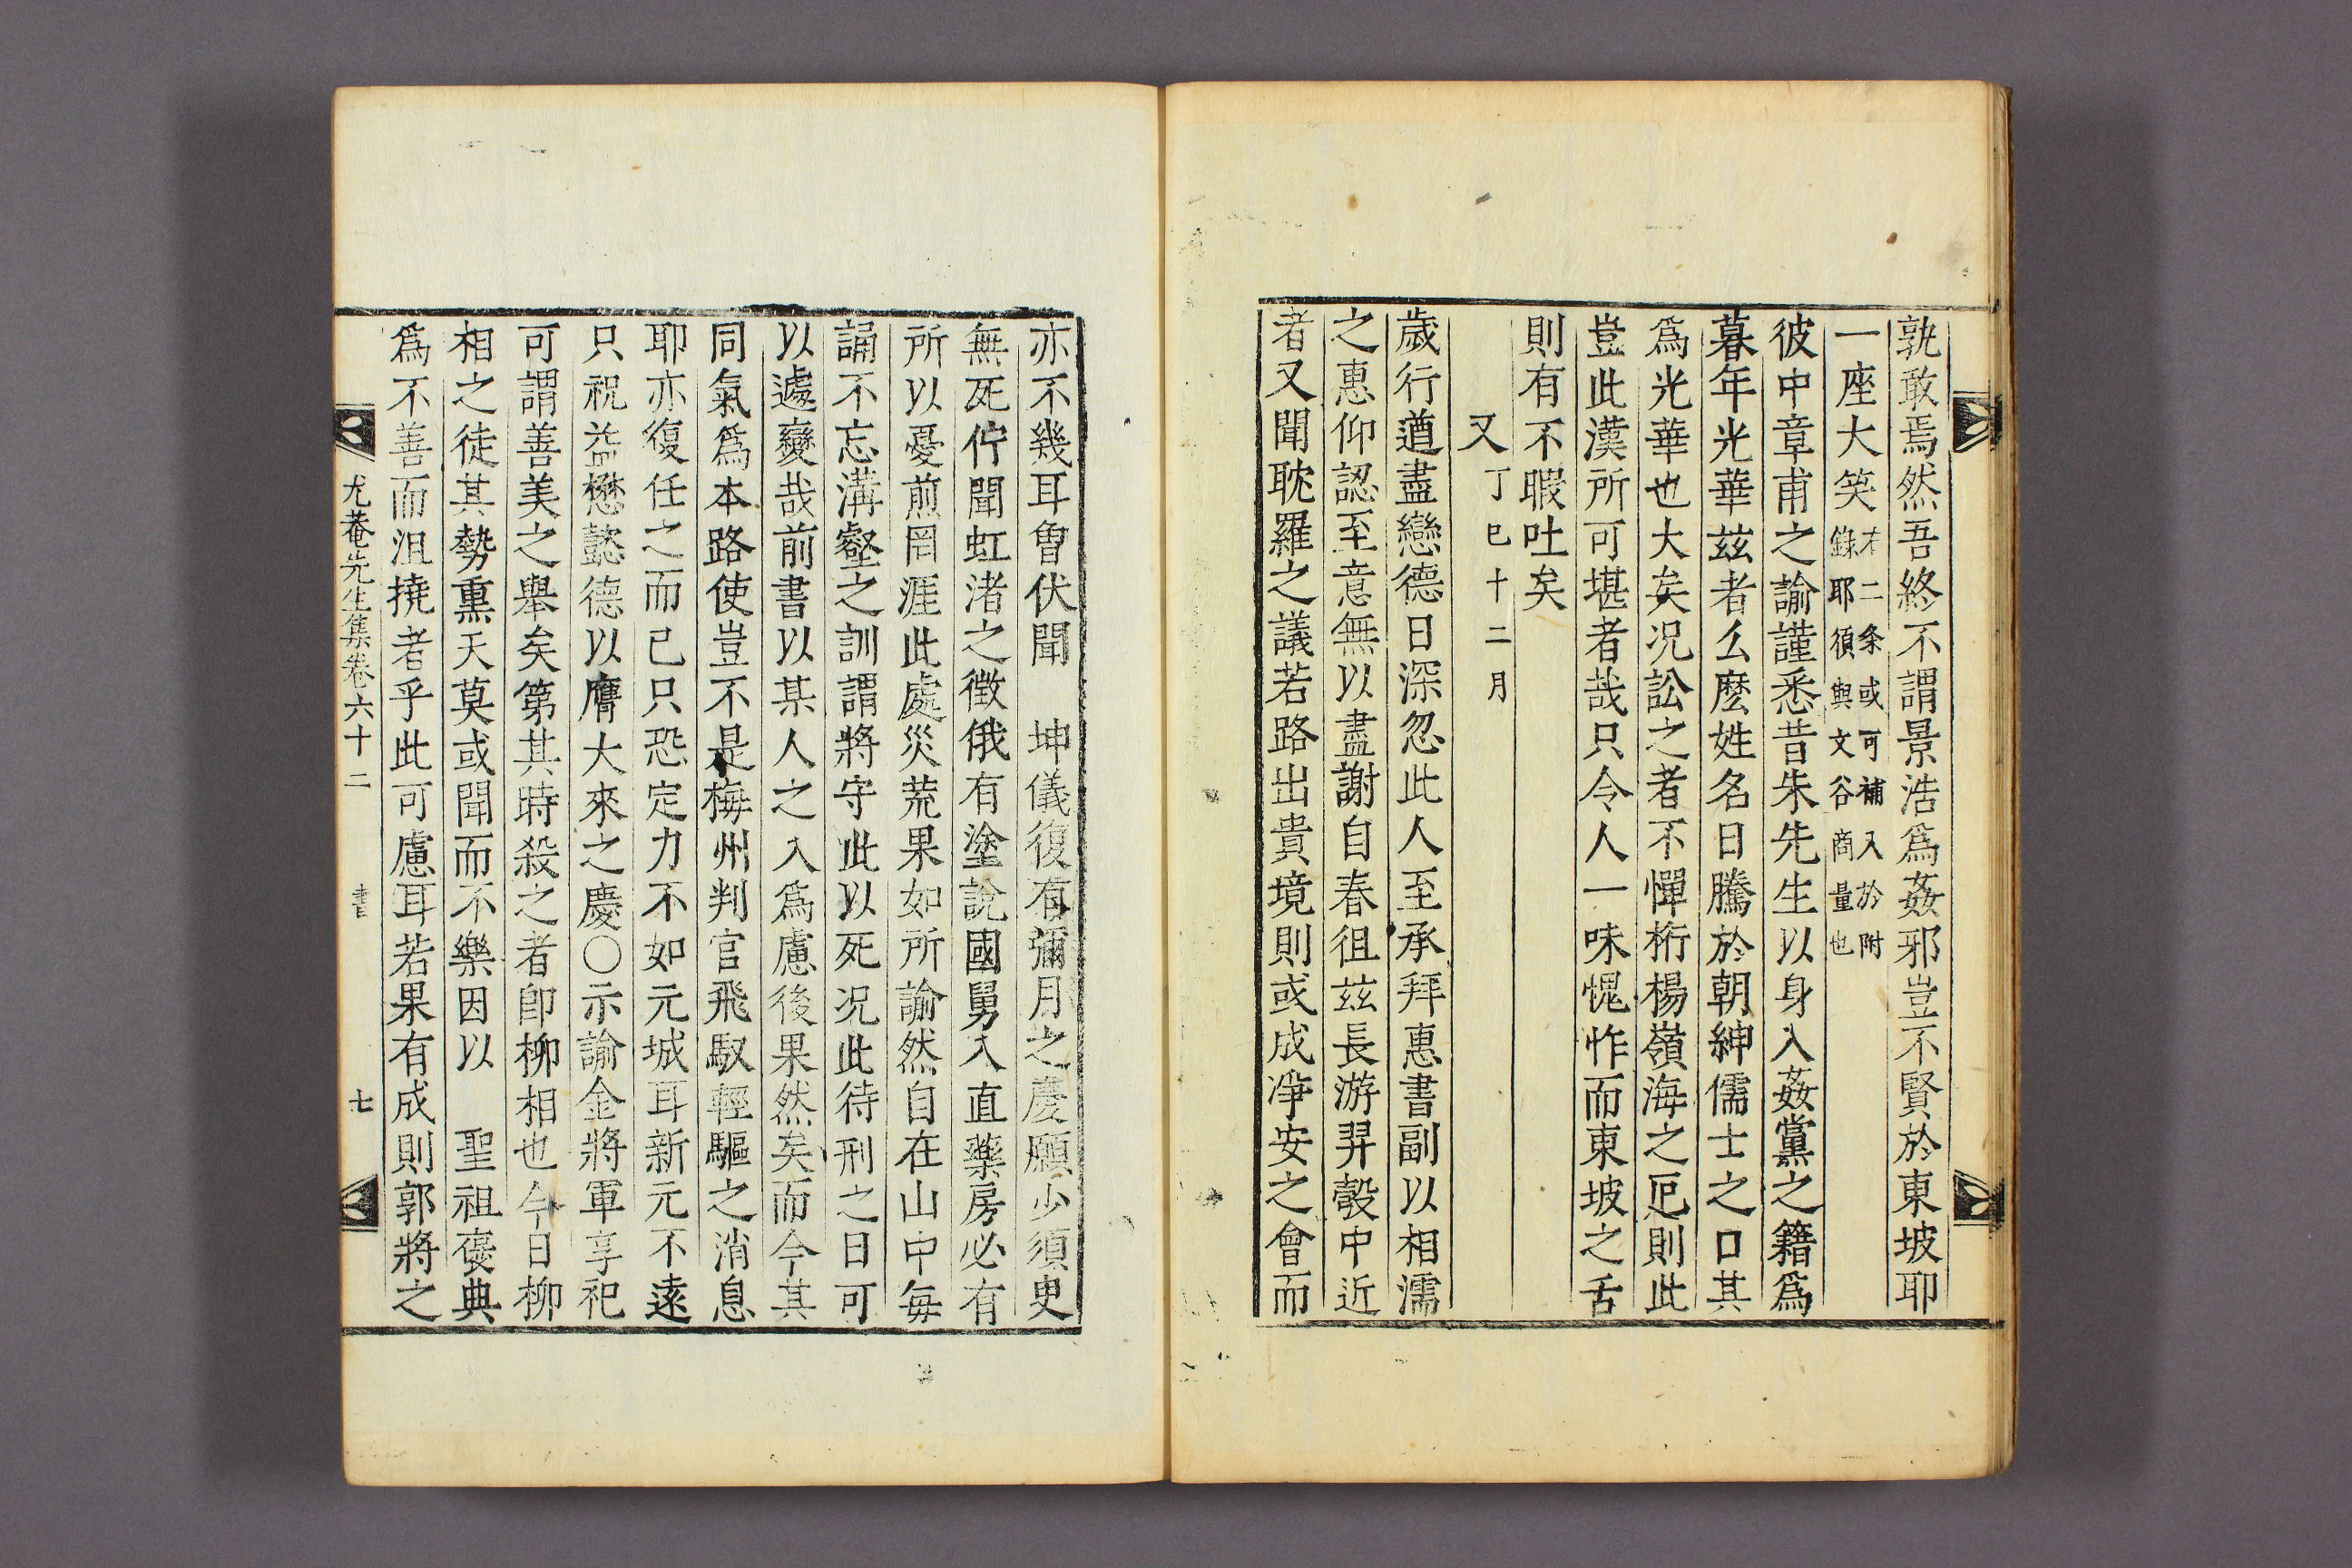 孰敢焉然吾終不謂景浩爲姦邪豈不賢於東坡耶
一座大笑右二条或可補入於附
錄耶須與文谷商量也
彼中章甫之諭謹悉昔朱先生以身入姦黨之籍爲
暮年光華玆者么麽姓名日騰於朝紳儒士之口其
爲光華也大矣况訟之者不憚桁楊嶺海之厄則此
豈此漢所可堪者哉只令人一味愧怍而東坡之舌
則有不暇吐矣
又丁巳十二月
歲行遒盡戀德日深忽此人至承拜惠書副以相濡
之惠仰認至意無以盡謝自春徂玆長游羿彀中近
者又聞耽羅之議若路出貴境則或成凈安之會而
亦不幾耳曾伏聞 坤儀復有彌月之慶願少須史
無死佇聞虹渚之徵俄有塗說國舅入直藥房必有
所以憂煎罔涯此處災荒果如所諭然自在山中每
誦不忘溝壑之訓謂將守此以死况此待刑之日可
以遽變哉前書以某人之入爲慮後果然矣而今其
同氣爲本路使豈不是梅州判官飛馭輕驅之消息
耶亦復任之而已只恐定力不如元城耳新元不遠
只祝益懋懿德以膺大來之慶○示諭金將軍享祀
可謂善美之舉矣第其時殺之者卽柳相也今日柳
相之徒其勢熏天莫或聞而不樂因以 聖祖褒典
爲不善而沮撓者乎此可慮耳若果有成則郭將之
尤菴先生集卷六十二 書 七